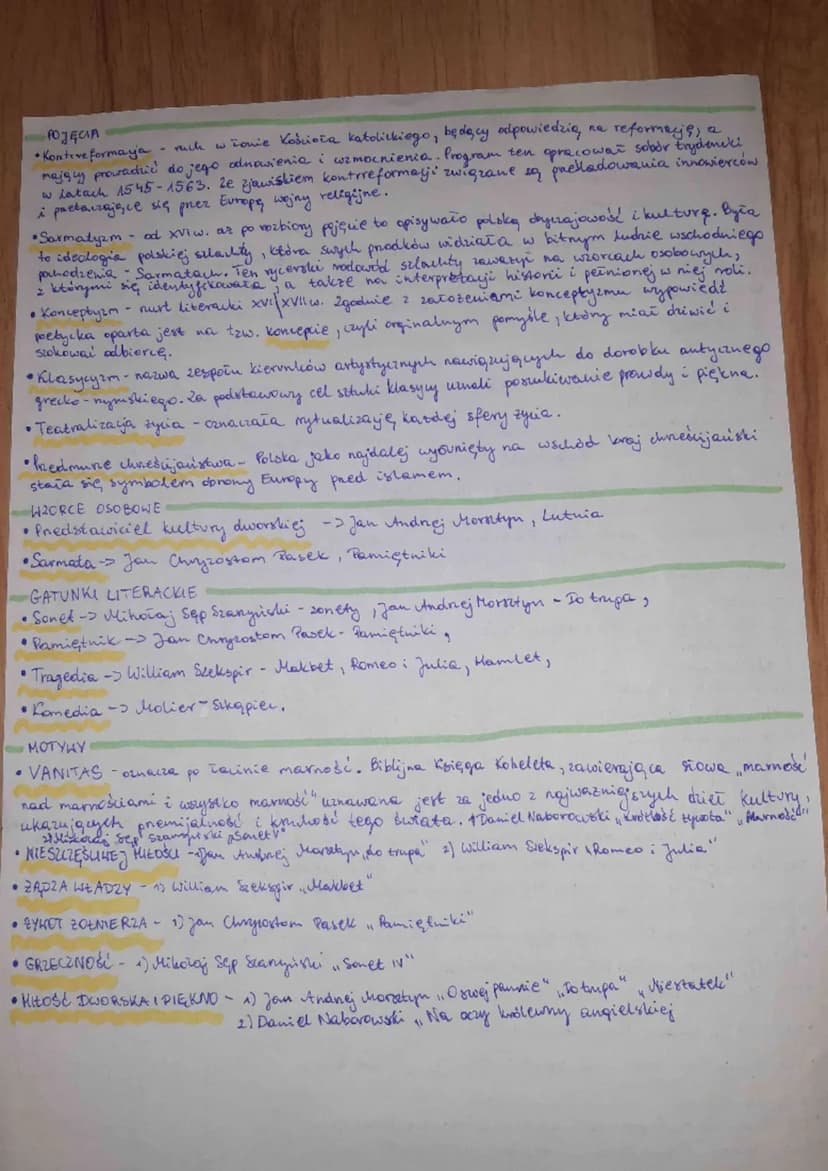 POJĘCIA
• Kontrreformacja - ruch w łonie Kościoła katolickiego, będący odpowiedzią na reformację, a
mający prowadzić do jego odnowienia i wzmocnienia. Program ten opracował sobór trydencki
w latach 1545-1563. Ze zjawiskiem kontrreformacji związane są prześladowania innowierców
i przetaczające się przez Europę wojny religijne.
• Sarmatyzm - od XVI w. aż po rozbiory pojęcie to opisywało polską obyczajowość i kulturę. Była
to ideologia polskiej szlachty, która swych przodków widziała w bitnym ludzie wschodniego
pochodzenia - Sarmatach. Ten rycerski rodowód szlachty zaważył na wzorcach osobowych,
z którymi się identyfikowała, a także na interpretacji historii i pełnionej w niej roli.
• Konceptyzm - nurt literacki XVI/XVII w. Zgodnie z założeniami konceptyzmu wypowiedź
poetycka oparta jest na tzw. koncepcie, czyli orginalnym pomyśle, który miał dziwić i
szokować odbiorcę.
• Klasycyzm - nazwa zespołu kierunków artystycznych nawiązujących do dorobku antycznego
grecko-rzymskiego. Za podstawowy cel sztuki klasycy uznali poszukiwanie prawdy i piękna.
• Teatralizacja życia - oznaczała rytualizację każdej sfery życia.
• Przedmurze chrześcijaństwa - Polska jako najdalej wysunięty na wschód kraj chrześcijański
stała się symbolem obrony Europy przed islamem.
WZORCE OSOBOWE
• Przedstawiciel kultury dworskiej -> Jan Andrzej Morsztyn, Lutnia
• Sarmata -> Jan Chryzostom Pasek, Pamiętniki
GATUNKI LITERACKIE
• Sonet -> Mikołaj Sęp Szarzyński - sonety, Jan Andrzej Morsztyn - Do trupa,
• Pamiętnik -> Jan Chryzostom Pasek - Pamiętniki,
• Tragedia -> William Szekspir - Makbet, Romeo i Julia, Hamlet,
• Komedia -> Molier - Skąpiec.
MOTYWY
• VANITAS - oznacza po łacinie marność. Biblijna Księga Koheleta, zawierająca słowa „marność
nad marnościami i wszystko marność" uznawana jest za jedno z najważniejszych dzieł kultury,
ukazujących przemijalność i kruchość tego świata. 1) Daniel Naborowski „Krótkość żywota" „Marność"
2) Mikołaj Sęp Szarzyński „Sonet V"
• NIESZCZĘŚLIWEJ MIŁOŚCI - 1) Jan Andrzej Morsztyn „Do trupa" 2) William Szekspir „Romeo i Julia"
• ŻĄDZA WŁADZY - 1) William Szekspir „Makbet"
• ŻYWOT ŻOŁNIERZA - 1) Jan Chryzostom Pasek „Pamiętniki"
• GRZECZNOŚĆ - 1) Mikołaj Sęp Szarzyński „Sonet IV"
• MIŁOŚĆ DWORSKA I PIĘKNO - 1) Jan Andrzej Morsztyn „O swej pannie" „Do trupa" „Niestatek"
2) Daniel Naborowski „Na oczy królewny angielskiej